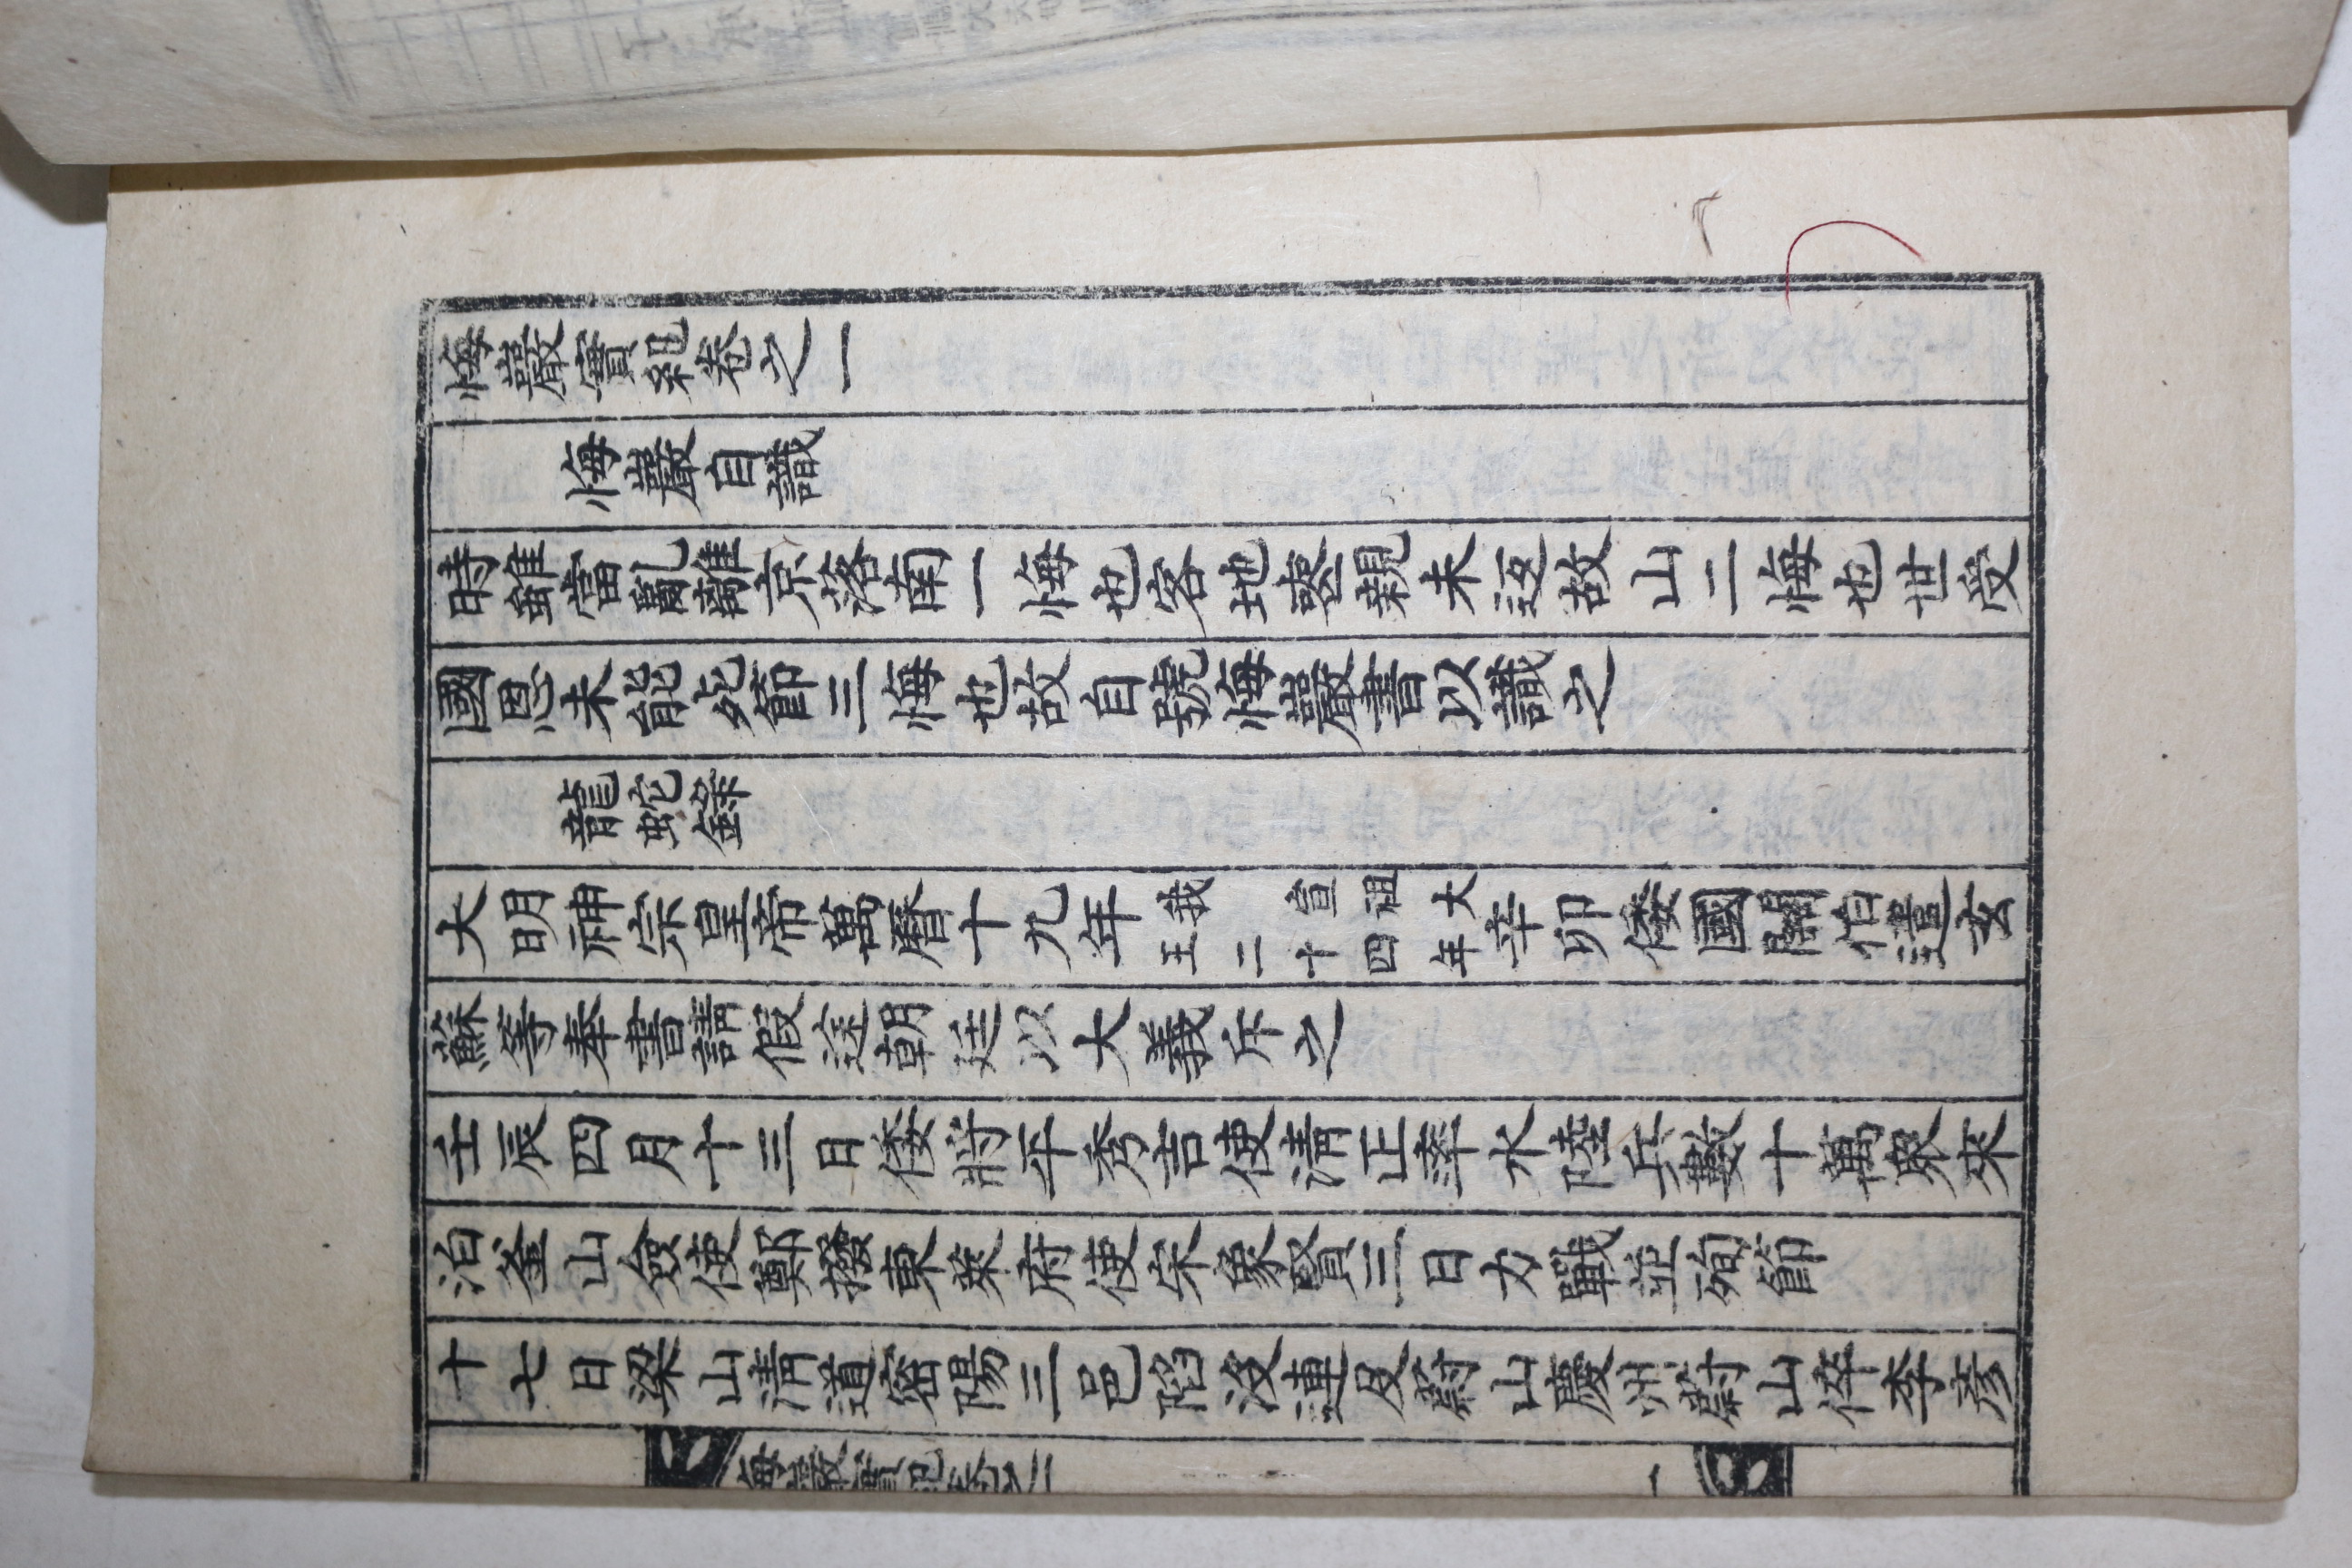 悔巖實紀卷之一
悔巖自識
時雖當亂離京落南一悔也客地窆親未返故山二悔也世受
國恩未能死節三悔也故自號悔巖書以識之
龍蛇錄
大明神宗皇帝萬曆十九年我宣祖大王二十四年辛卯倭國關伯遣玄
蘇等奉書請假途朝廷以大義斥之
壬辰四月十三日倭將平秀吉使淸正率水陸兵數十萬衆來
泊釜山僉使鄭撥東萊府使宋象賢三日力戰並殉節
十七日梁山淸道密陽三邑陷沒連及蔚山慶州蔚山倅李彦
悔巖實紀卷之一
一